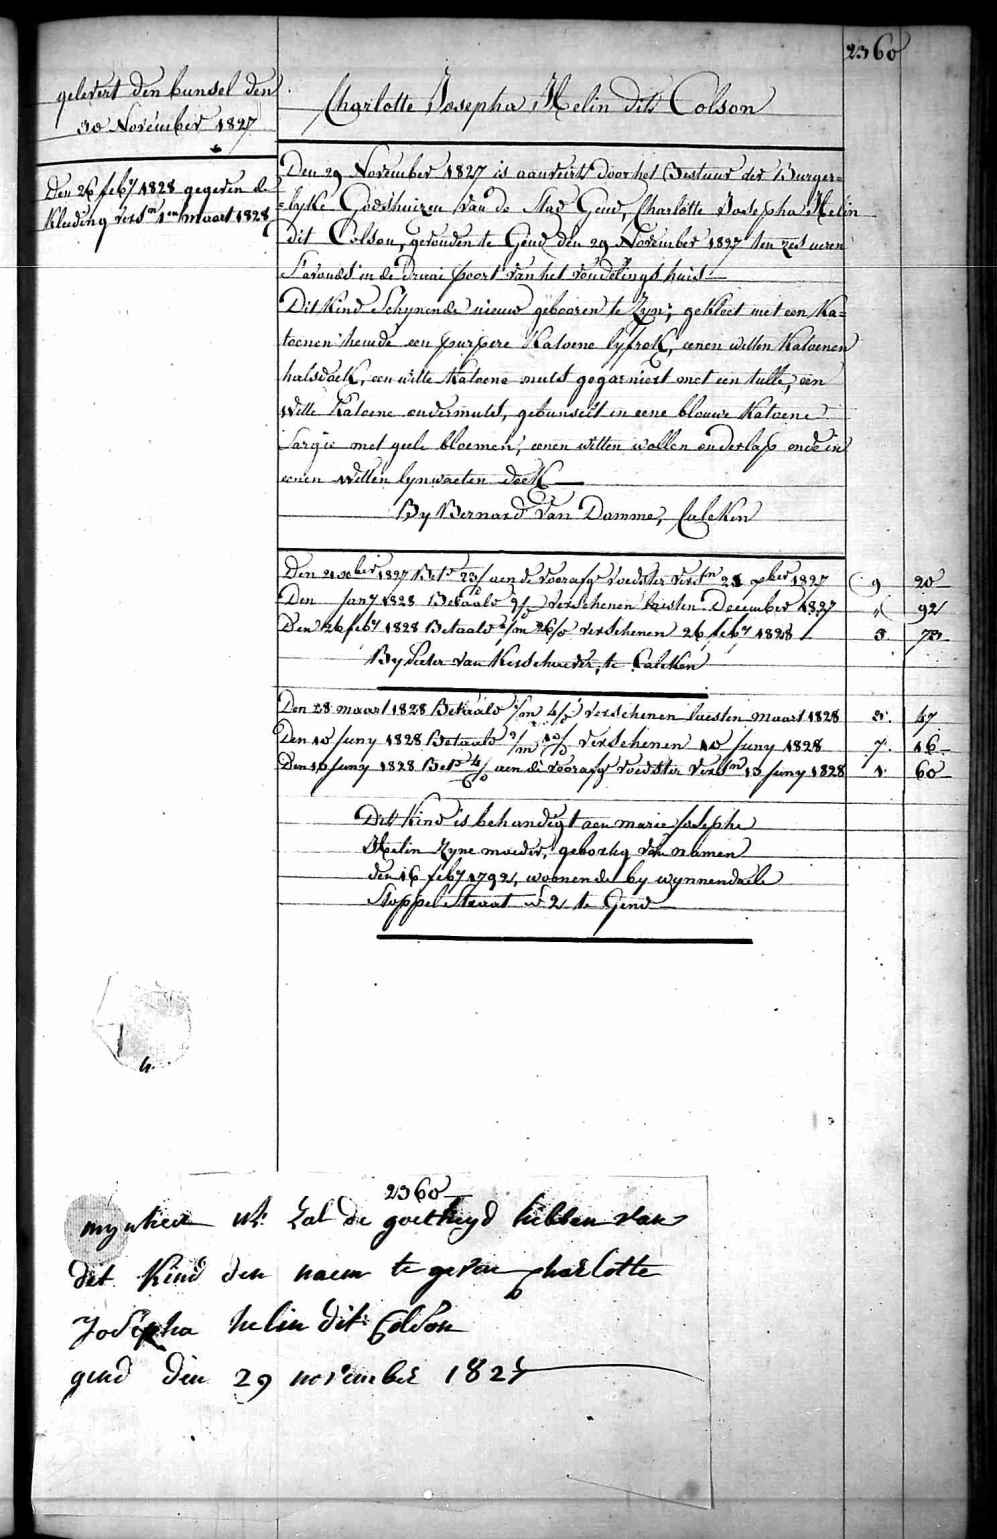 2360
gelevert den bunsel den
30 November 1827
Den 26 feby 1828 gegeven de
Kleding vers en 1en maart 1828
Charlotte Josepha Helin dit Colson
Den 29 November 1827 is aanveirt door het Bestuur der Burger=
=lyke Godshuizen van de Stad Gend, Charlotte Josepha Helin
dit Colson, gevonden te Gend den 29 November 1827 ten zes uren
s'avonds in de draai poort van het vondelings huis
Dit Kind Schynende nieuw gebooren te Zyn; gekleet met een Ka=
toenen hemde een purpere Katoene lyfrok, eenen witten Katoenen
halsdoek, een witte Katoene muts gegarniert met een tulle, een
Witte Katoene ondermuts, gebunselt in eene blauwe Katoene
Sargie met geele bloemen, eenen witten wollen onderlap ende in
eenen Witten lynwaeten doek
By Bernard Van Damme, Calcken
Den 1827 Bet.d 23/ aen de voorafge Voedster vers.en 1827 9 20
Den Jany 1828 Betaald Verschenen laesten December 1827 " 92
Den 26 feby 1828 Betaald 2/m 26/d verschenen 26 feby 1828 3. 78
By Pieter van Kerschaever, te Calcken
Den 28 maart 1828 Betaald 1/m 4/d verschenen laesten maart 1828 47
Den 10 Juny 1828 Betaald 2/m 10/d verschenen 10 Juny 1828 7. 16
Den 16 Juny 1828 Bet.d aen de voorafge voedster vers.en 13 Juny 1828 1. 60
Dit Kind is behandigt aen marie Josephe
Helin Zyne moeder, geboortig van namen
den 16 feby 1792, woonende by wynnendaele
Stoppel Straat n° 2 te Gend
2360
mynheer UE. Zal de goetheyd hebben van
det Kind den naem te geven Charlotte
Josepha helin dit Colson
gend den 29 november 1827